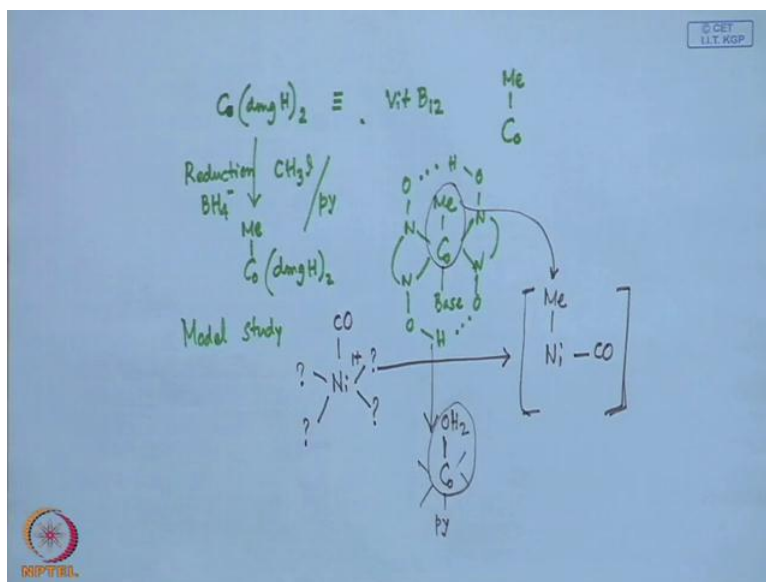 © CET
I.I.T. KGP
Co(dmgH)2 ≡ . Vit B12
Me
Co
Reduction CH3I
BH4⁻ / py
Me
Co(dmgH)2
O ··· H O
Me
N N
Co
N N
Base
O O
H ···
Model study
CO
Ni I+
? ? ? ?
[ Me
Ni — CO ]
OH2
Co
py
NPTEL